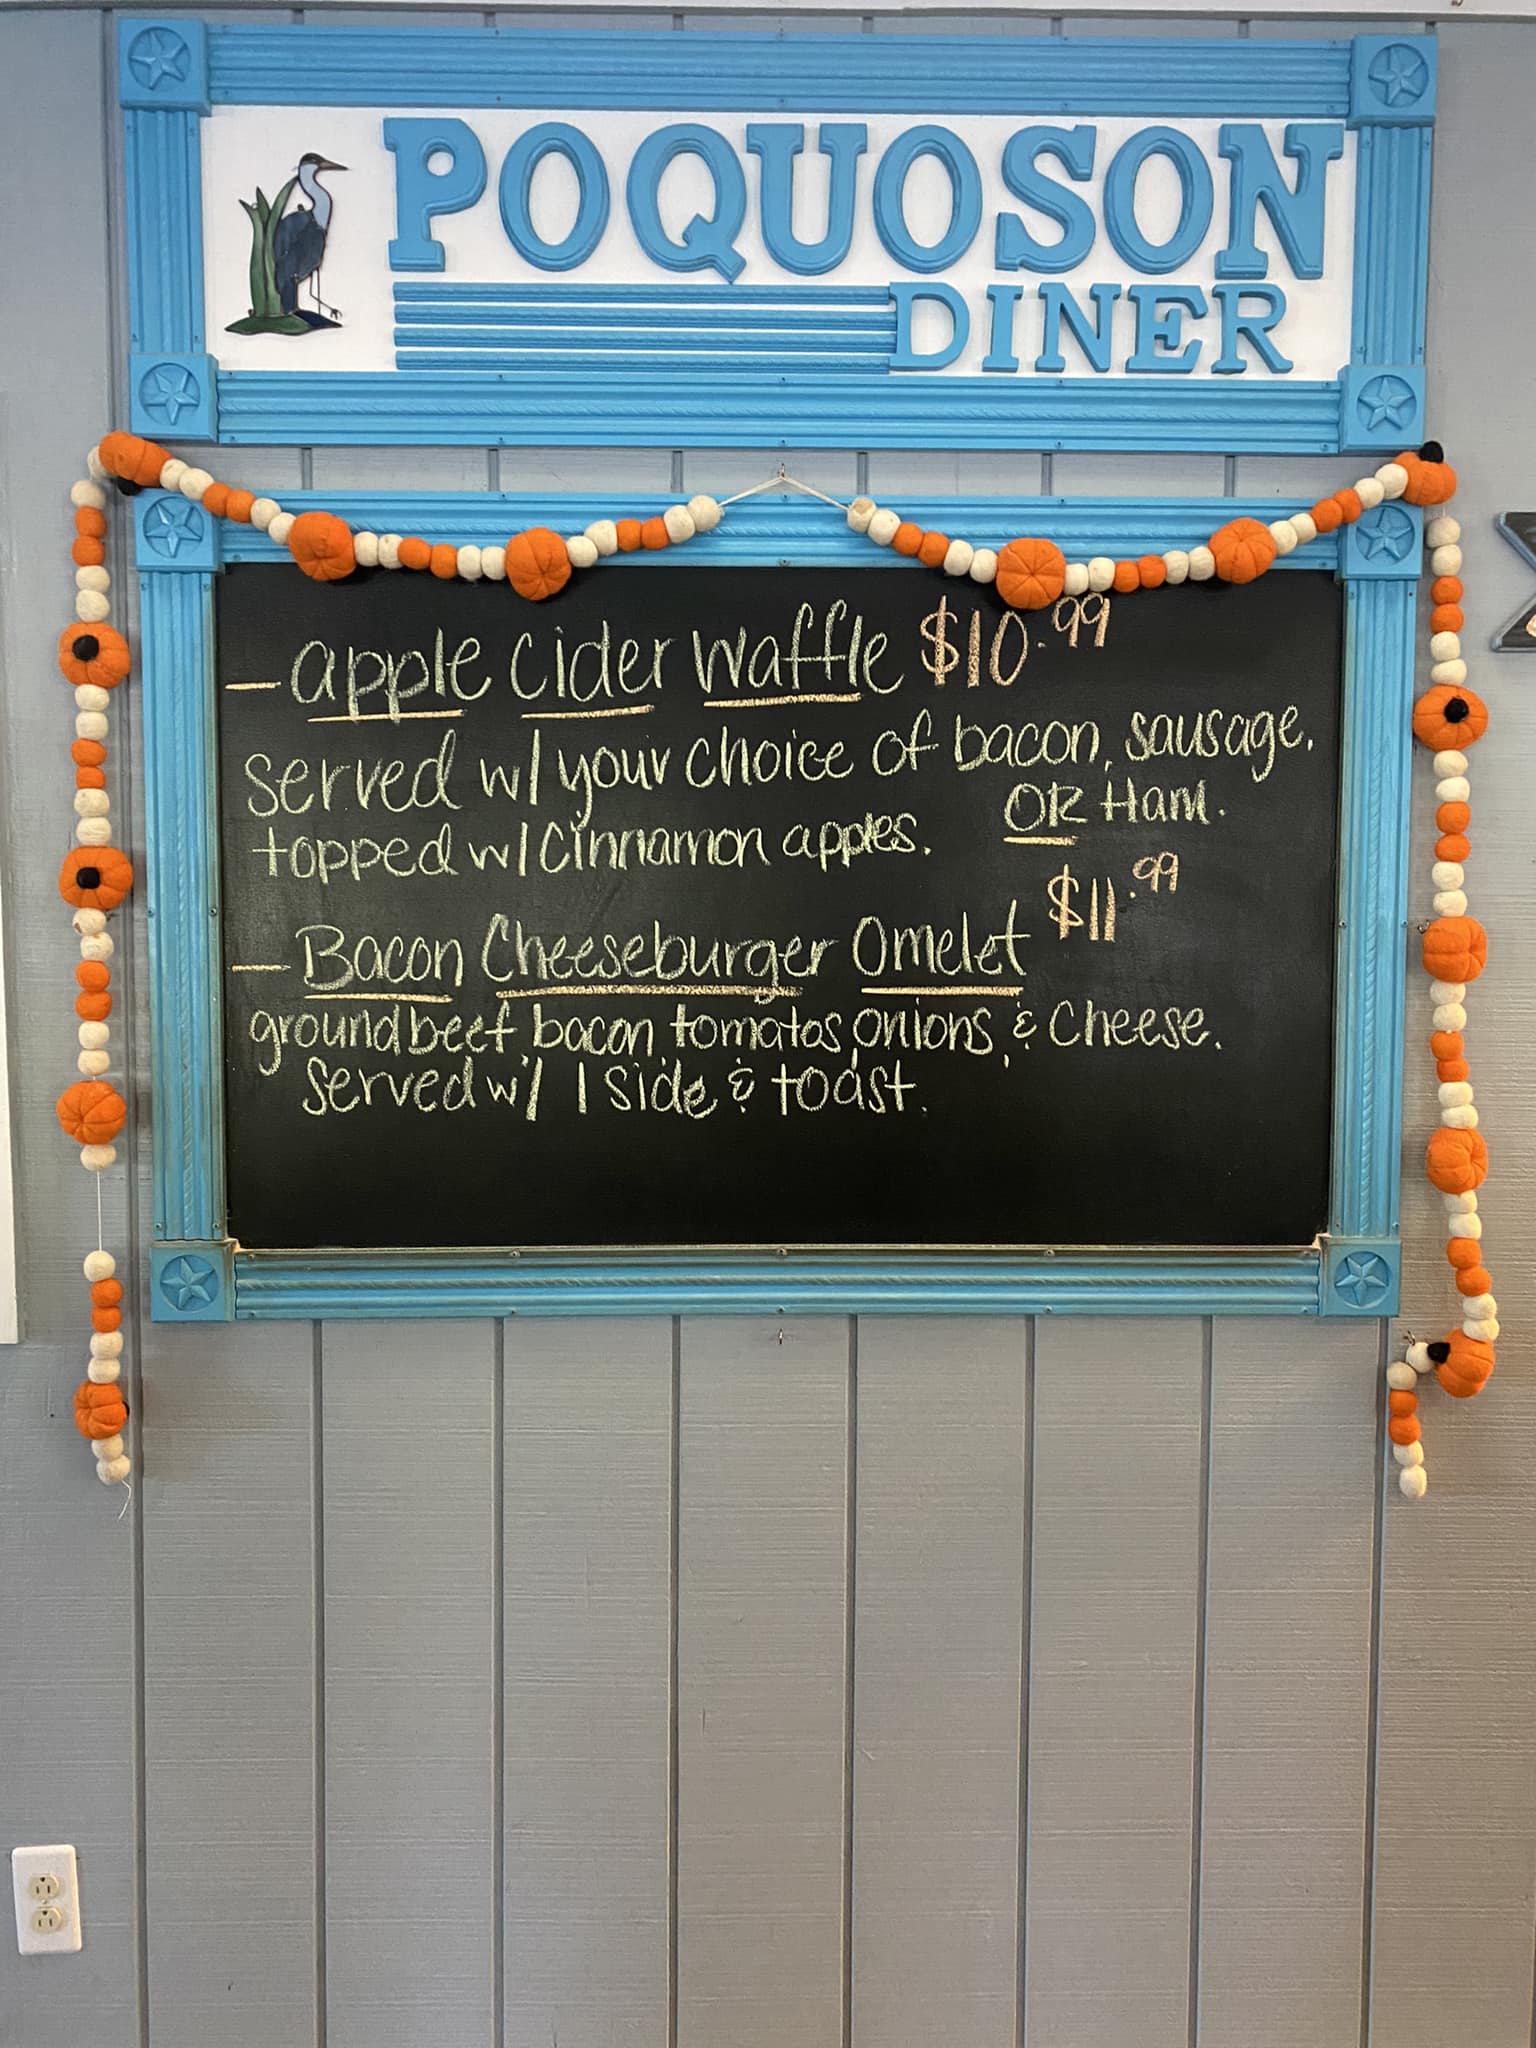 POQUOSON
DINER
- apple cider waffle $10.99
served w/ your choice of bacon, sausage,
OR Ham.
topped w/ cinnamon apples.
- Bacon Cheeseburger Omelet $11.99
ground beef, bacon, tomatos, onions, & cheese.
served w/ 1 side & toast.